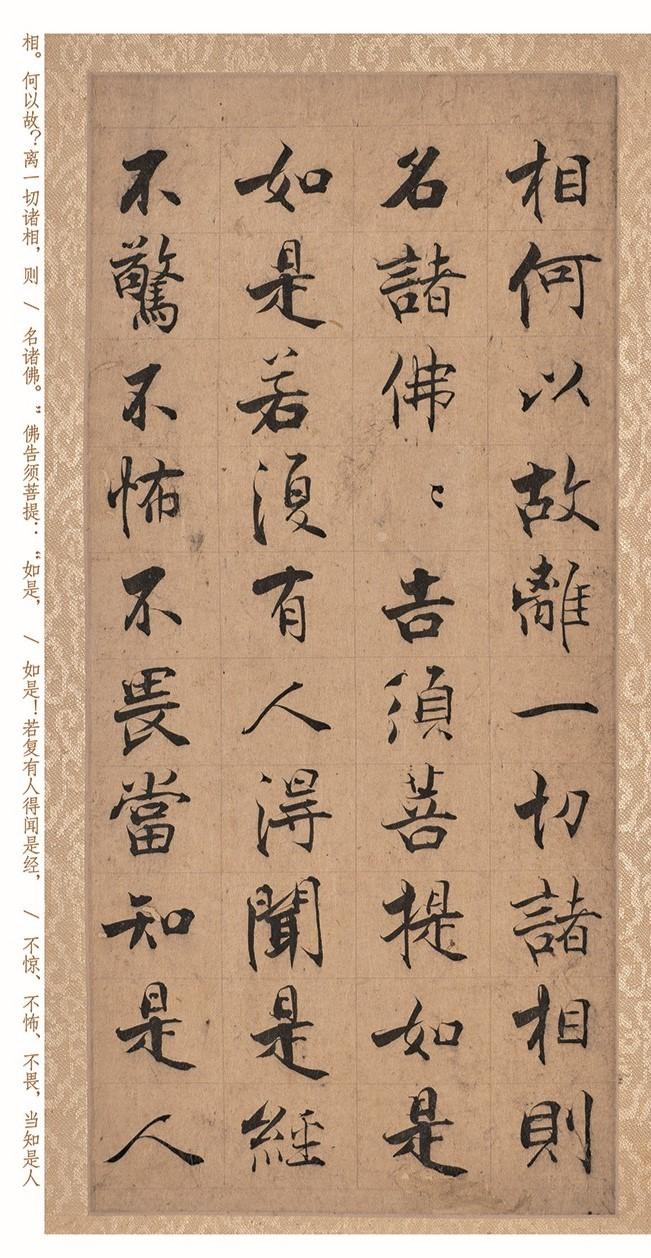 相何以故離一切諸相則
名諸佛〻告須菩提如是
如是若復有人得聞是經
不驚不怖不畏當知是人
相。何以故？离一切诸相，则 / 名诸佛。”佛告须菩提：“如是， / 如是！若复有人得闻是经， / 不惊、不怖、不畏，当知是人